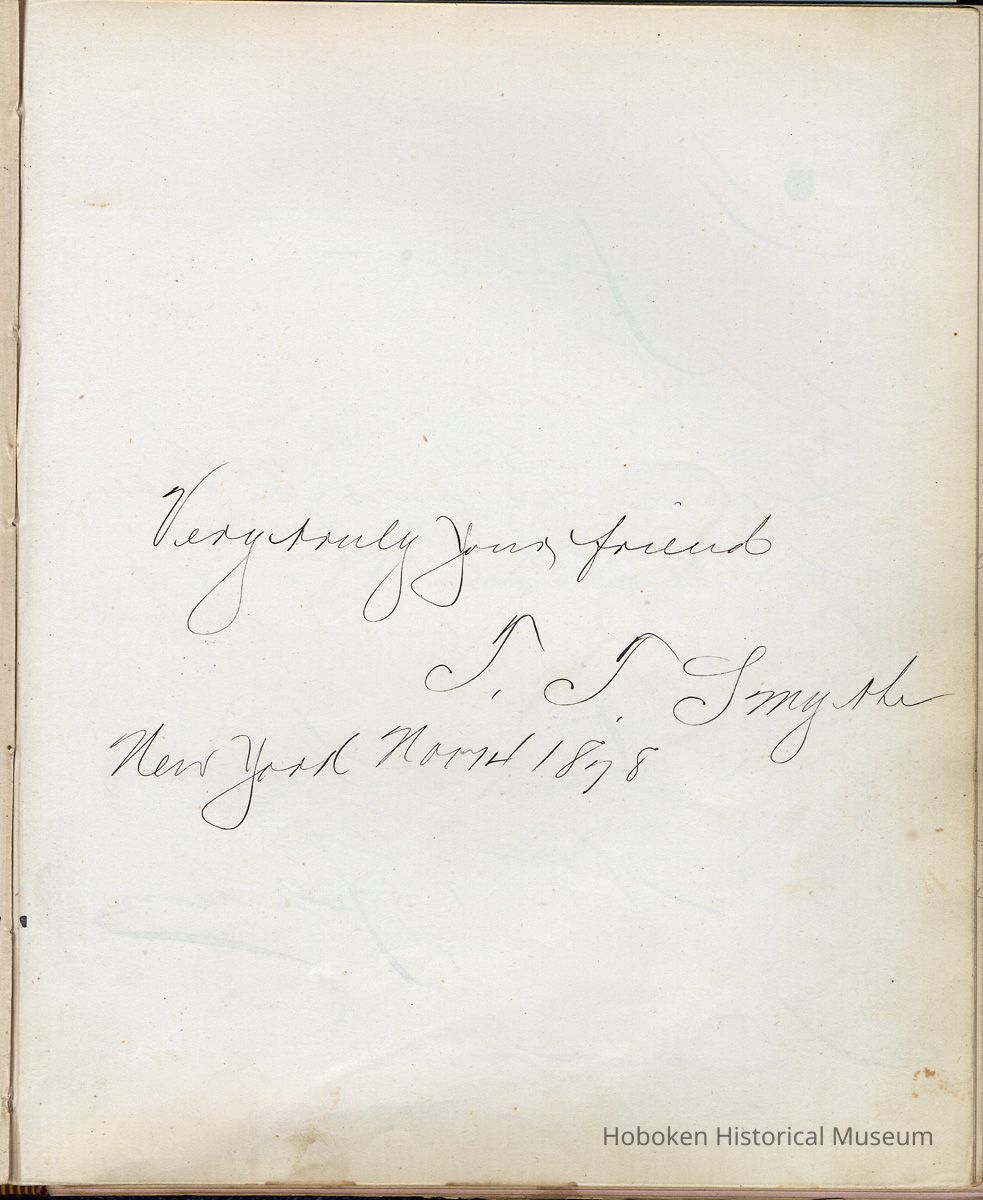 Very truly Your friend
T. T. Smythe
New York Nov 14 1878
Hoboken Historical Museum